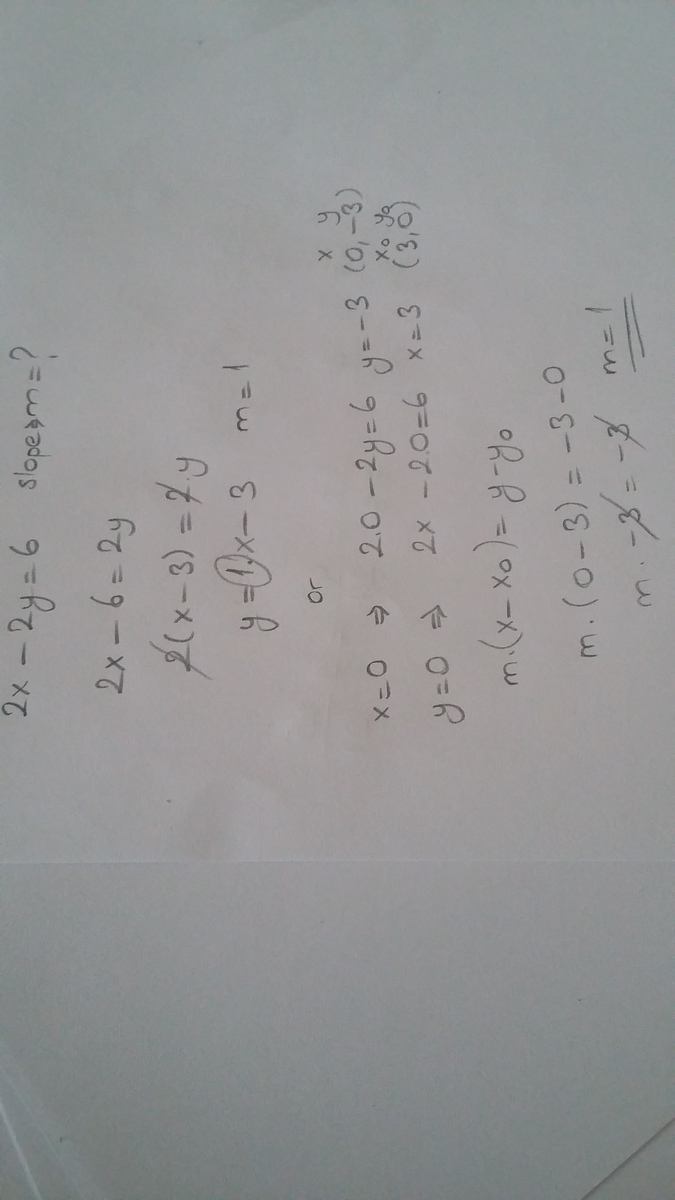 2x - 2y = 6 slope⇒m = ?
2x - 6 = 2y
2(x - 3) = 2.y
y = 1.x - 3 m = 1
or
x y
x = 0 ⇒ 2.0 - 2y = 6 y = -3 (0, -3)
x₀ y₀
y = 0 ⇒ 2x - 2.0 = 6 x = 3 (3, 0)
m.(x - x₀) = y - y₀
m.(0 - 3) = -3 - 0
m. -3 = -3 m = 1